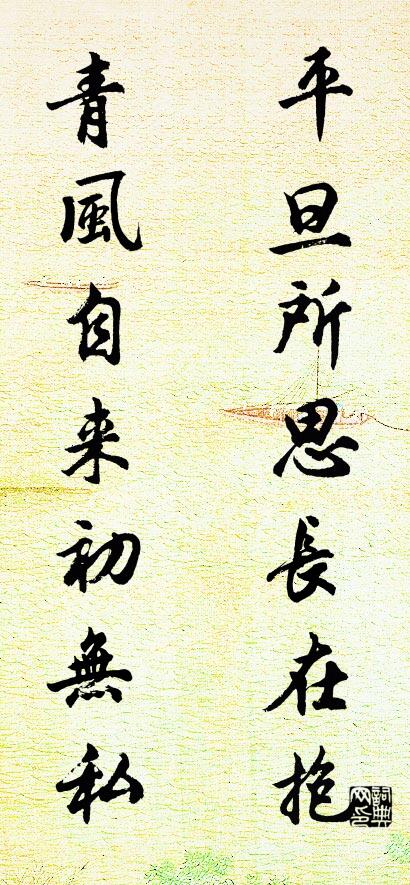 平旦所思長在抱
青風自来初無私
詞典网